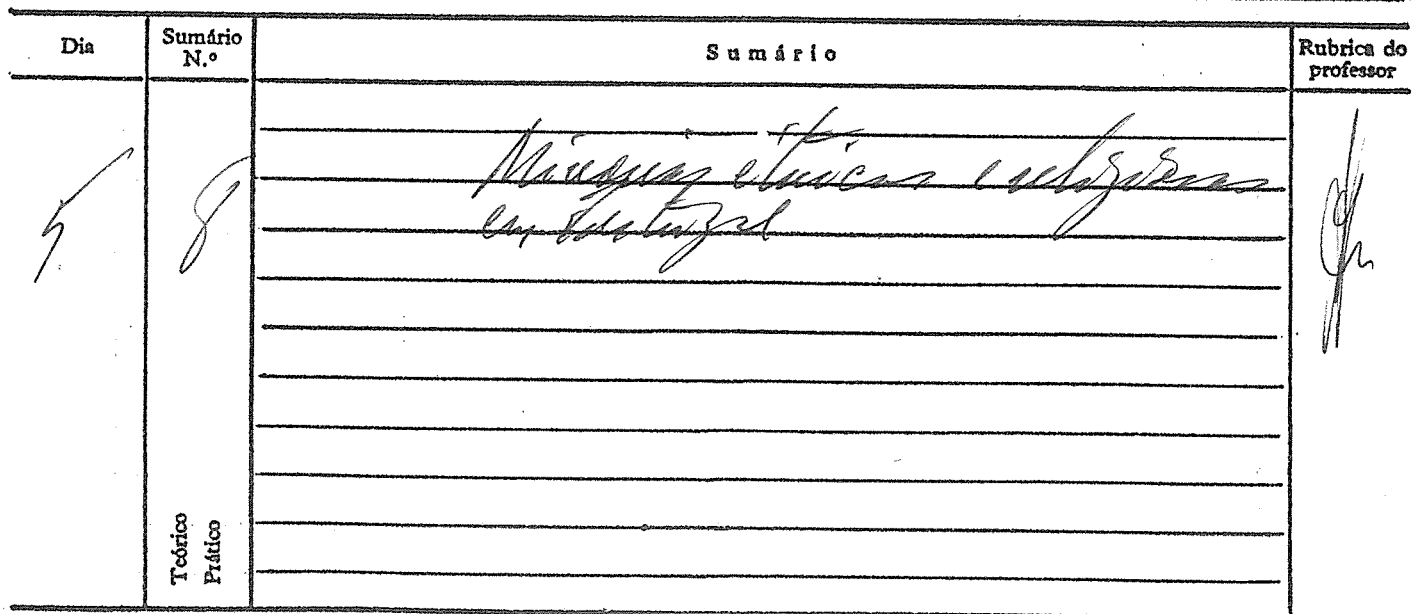 Dia
Sumário N.º
Sumário
Rubrica do professor
5
8
Minorias étnicas e religiosas
em Portugal
Teórico
Prático